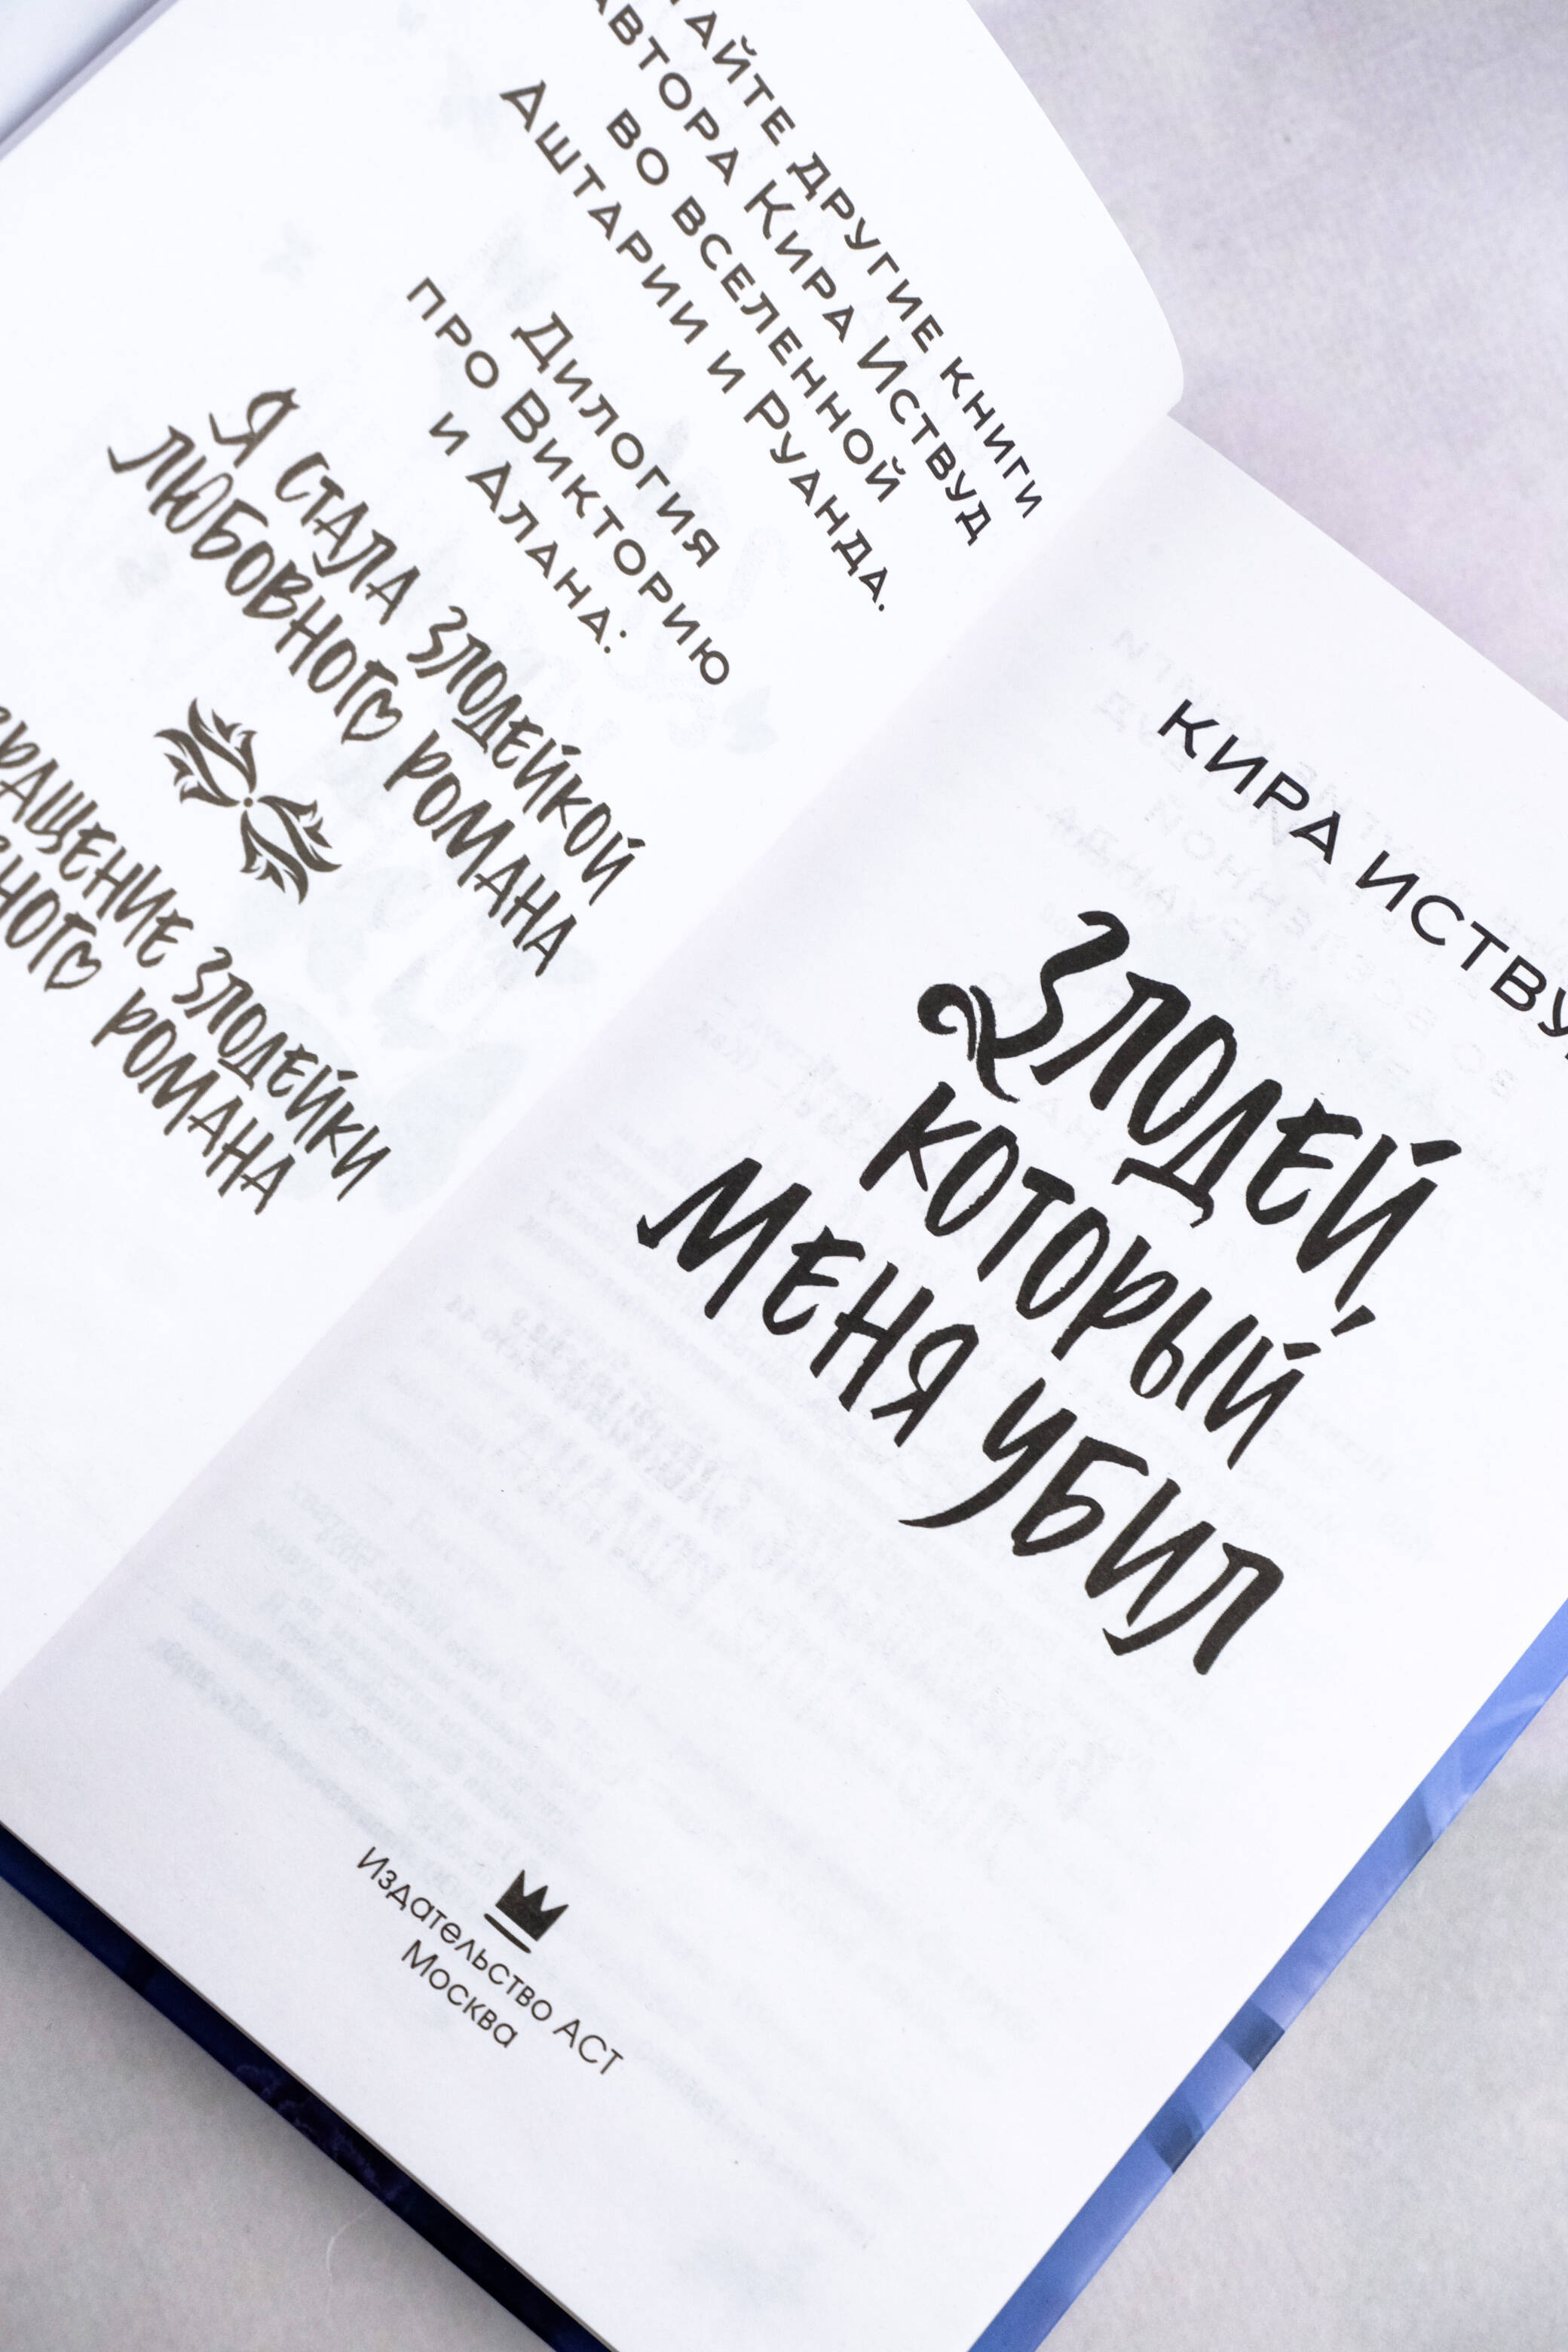 ДРУГИЕ КНИГИ
АВТОРА КИРА ИСТВУД
ВО ВСЕЛЕННОЙ
АШТАРИИ И РУАНДА.
ДИЛОГИЯ
ПРО ВИКТОРИЮ
И АЛАНА:
Я СТАЛА ЗЛОДЕЙКОЙ
ЛЮБОВНОГО РОМАНА
ЗЛОДЕЙКИ
РОМАНА
КИРА ИСТВУ
ЗЛОДЕЙ,
КОТОРЫЙ
МЕНЯ УБИЛ
Издательство АСТ
Москва